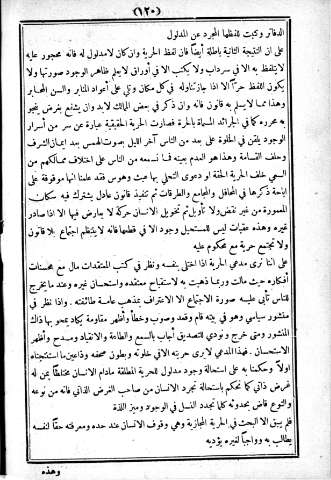 (١٢٠)
الدفاتر وكتبت للفظها المجرد عن المدلول
على ان النتيجة الثانية باطلة أيضاً فان لفظ الحرية وان كان لا مدلول له فانه محجور عليه
لا يلتفظ به الا في سرداب ولا يكتب الا في أوراق لا يعلم ظاهر الوجود صورتها ولا
يكون اللفظ حراً الا اذا جاز تناوله في كل مكان وتلى على أعواد المنابر والسن المحابر
وهذا مما لا يسلم به قانون فانه وان ذكر في بعض الممالك لابد وان يشفع بغرض ينجو
به محرره كما في الجرائد المسماة بالحرة فصارت الحرية الحقيقية عبارة عن سر من أسرار
الوجود يلقن في الخلوة على بعد من الناس آخر الليل بصوت الهمس بعد ايمان الشرف
وحلف القسامة وهذا هو العدم بعينه فما نسمعه من الناس على اختلاف ممالكهم من
اسم الحرية ودعوى التحلي بها عبث وهوس فقد علمنا انها موقوفة على
اباحة ذكرها في المحافل والمجامع والطرقات ثم تنفيذ قانون عادل يشترك فيه سكان
المعمورة من غير نقض ولا تأويل ثم تخويل الانسان حركة لا يعارض فيها الا اذا صادر
غيره وهذه عقبات ليس للمستحيل وجود الا في قطعها فانه لا ينتظم اجتماع بلا قانون
ولا تجتمع حرية مع محكوم عليه
على اننا نرى مدعي الحرية اذا اختلى بنفسه ونظر في كتب المعتقدات مال مع محسنات
أفكاره حيث مالت وربما ذهبت به لاستقباح معتقده واستحسان غيره وعند ما يخرج
للناس تأبى عليه صورة الاجتماع الا الاعتراف بمذهب عامة طائفته. واذا نظر في
منشور سياسي وهو في بيته قام وقعد وصوب وخطأ وأظهر مقاومة يكاد يمحو بها ذلك
المنشور ومتى خرج ونودي للتصديق أجاب بالسمع والطاعة والانقياد ومدح وأظهر
الاستحسان. فهذا المدعي لا يرى حريته الا في خلوته وبطون صحفه وذاعين ما استنتجناه
أولاً وحكمنا به على استحالة وجود مدلول للحرية المطلقة مادام الانسان مختلطاً بمن له
غرض ذاتي كما نحكم باستحالة تجرد الانسان من صاحب الغرض الذاتي فانه من نوعه
والنوع قاض بحدوثه كلما تجدد النسل في الوجود وميز اللذة
فلم يبق الا البحث في الحرية المجازية وهي وقوف الانسان عند حده ومعرفته حقاً لنفسه
يطالب به وواجباً لغيره يؤديه
وهذه